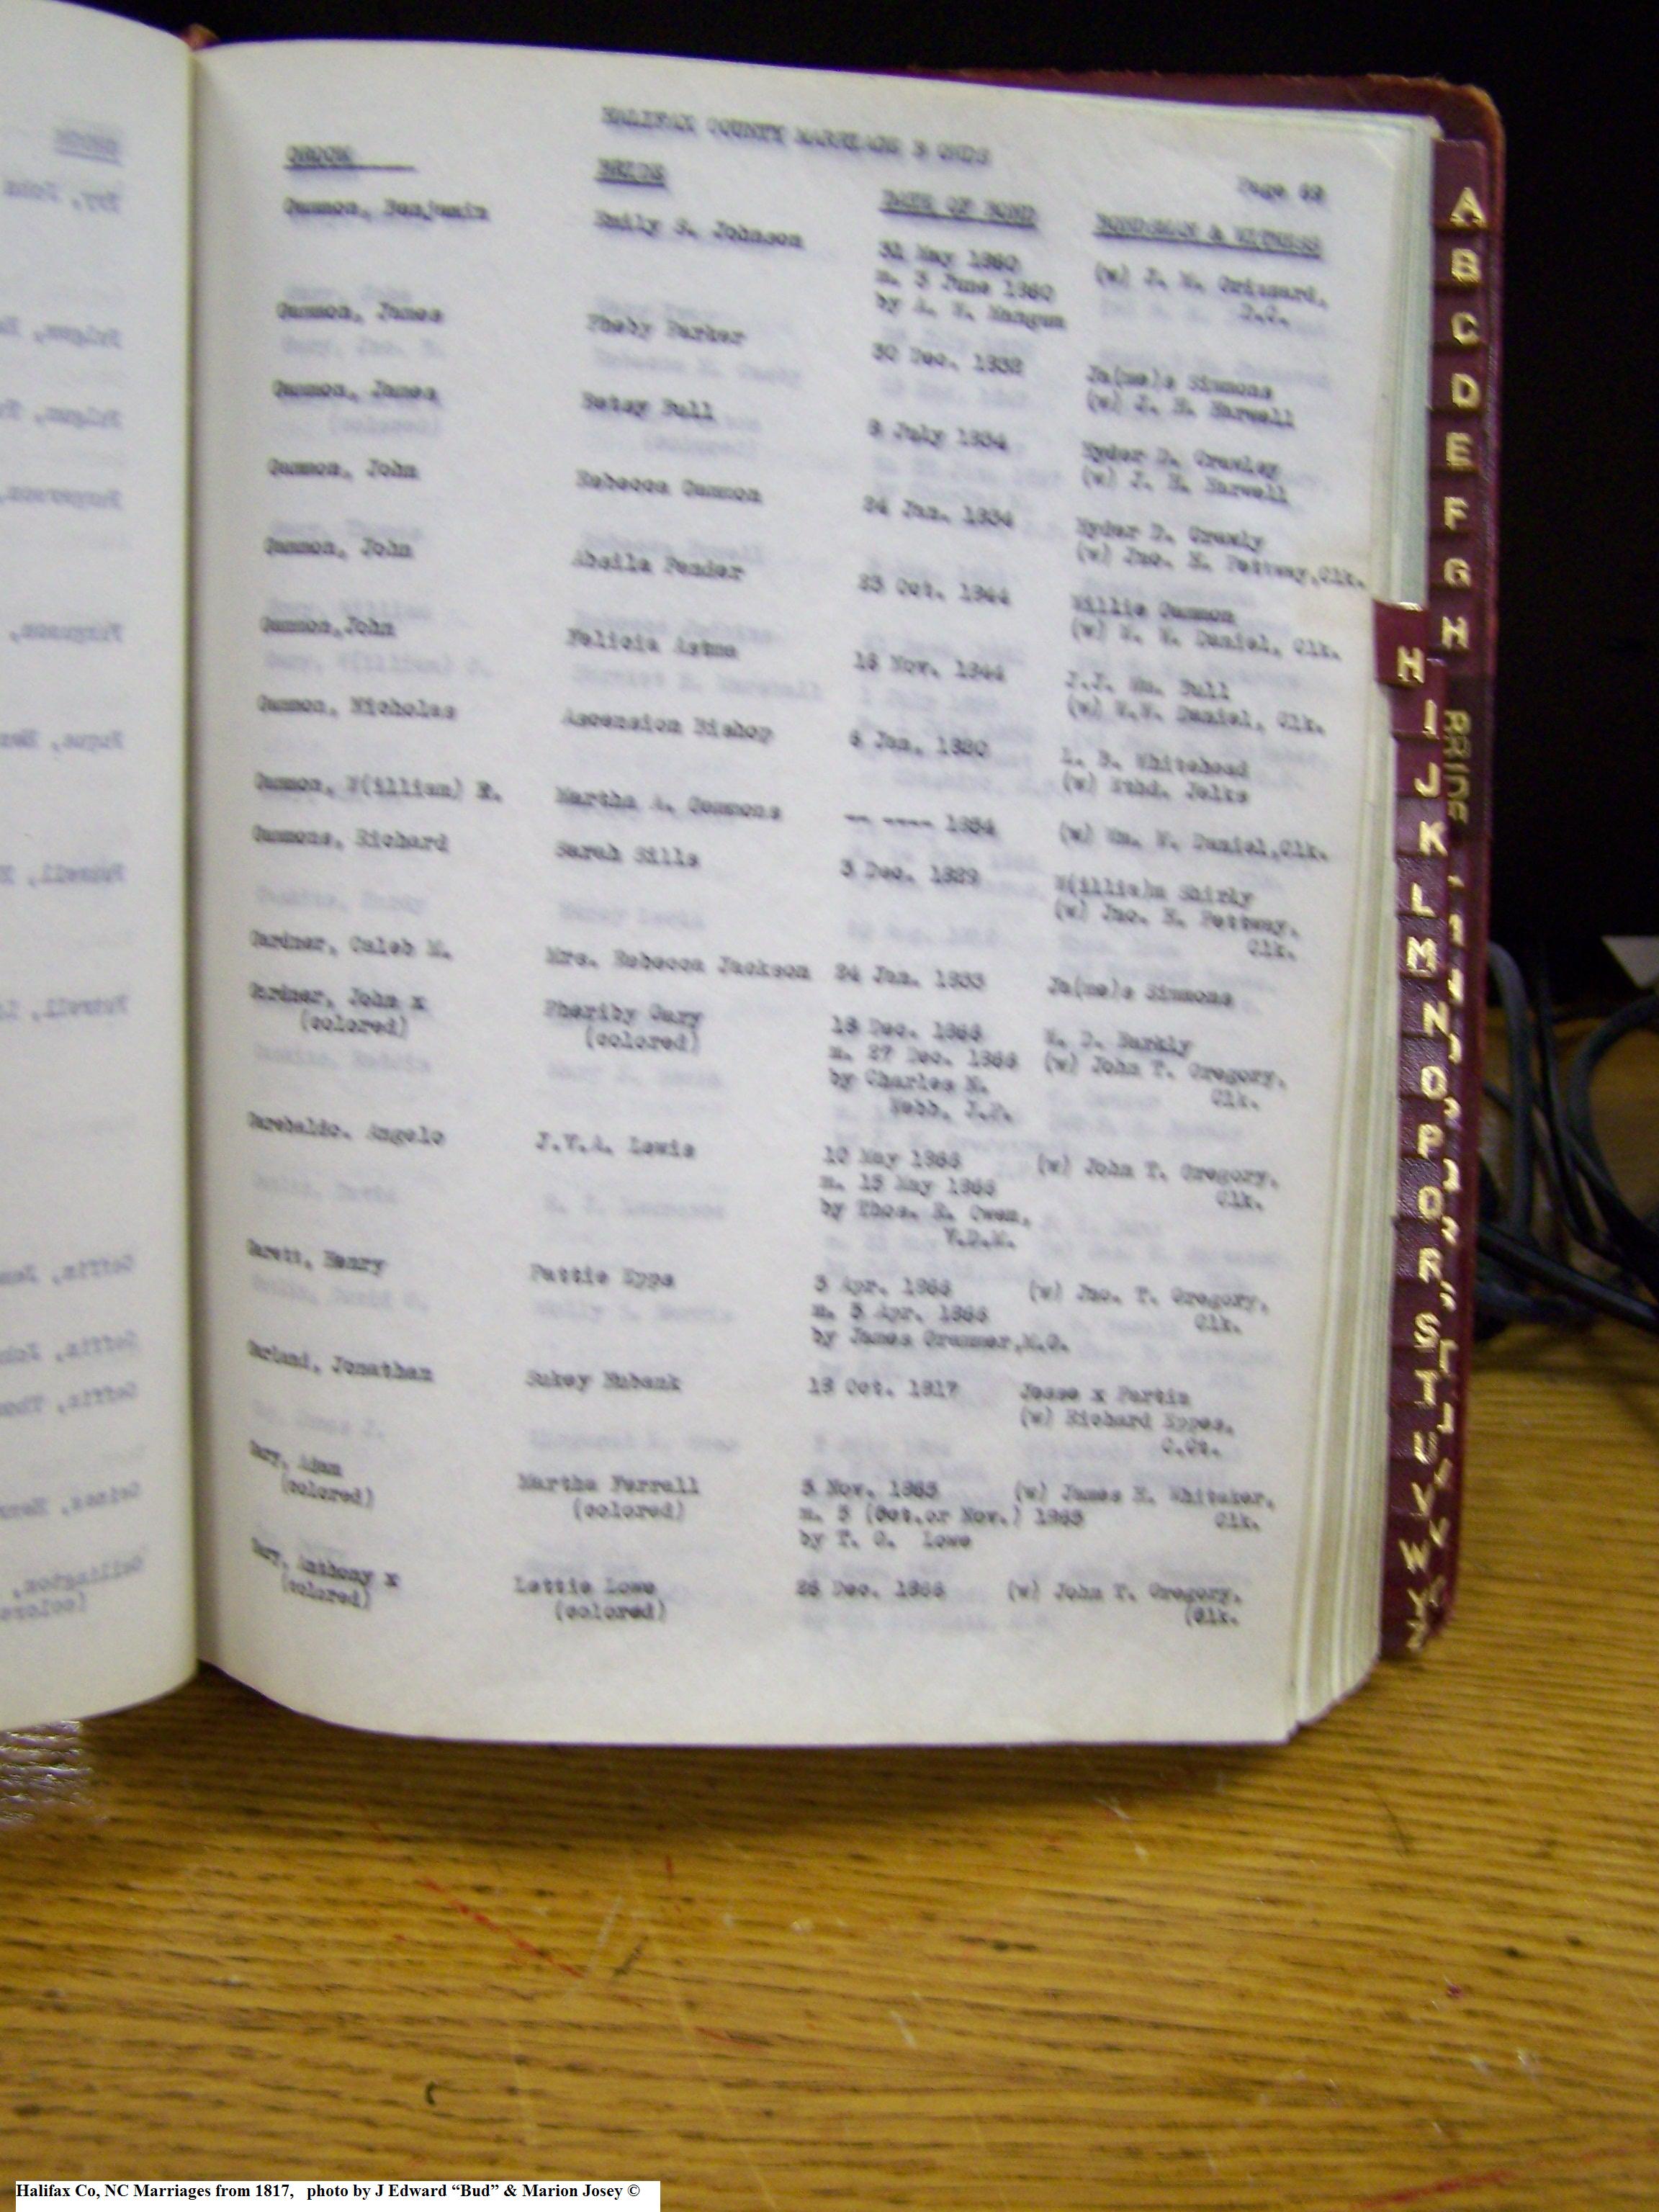 HALIFAX COUNTY MARRIAGE B ONDS
GROOM BRIDE Page 69
DATE OF BOND BONDSMAN & WITNESS
Gammon, Benjamin Emily S. Johnson 31 May 1860 (w) J. M. Grizzard,
m. 5 June 1860 D.C.
by A. W. Mangum
Gammon, James Pheby Parker 30 Dec. 1832 Ja(me)s Simmons
(w) J. H. Harwell
Gammon, James Betsy Bull 8 July 1834 Hyder D. Crawley
(w) J. H. Harwell
Gammon, John Rebecca Gammon 24 Jan. 1834 Hyder D. Crawly
(w) Jno. H. Pettway,Clk.
Gammon, John Absila Pender 25 Oct. 1844 Willie Gammon
(w) W. W. Daniel, Clk.
Gammon,John Felicia 18 Nov. 1844 J.J. Wm. Bull
(w) W.W. Daniel, Clk.
Gammon, Nicholas Ascension Bishop 6 Jan. L. B. Whitehead
(w) Nthd. Jelks
Gammon, W(illiam) Martha A. Gammons -- ---- 1854 (w) Wm. W. Daniel,Clk.
Gammons, Richard Sarah Sills 3 Dec. 1829 W(illia)m Shirly
(w) Jno. H. Pettway,
Clk.
Gardner, Caleb M. Mrs. Rebecca Jackson 24 Jan. 1833 Ja(me)s Simmons
Gardner, John x Pheriby Gary 18 Dec. 1866 W. D. Barkly
(colored) (colored) m. 27 Dec. 1866 (w) John T. Gregory,
by Charles N. Clk.
Webb, J.P.
Garebaldic. Angelo J.V.A. Lewis 10 May 1866 (w) John T. Gregory,
m. 15 May 1866 Clk.
by Thos. Owen,
V.D.M.
Garett, Henry Pattie Epps Apr. 1866 (w) Jno. T. Gregory,
m. 5 Apr. 1866 Clk.
by James Grammer,M.G.
Garland, Jonathan Sukey Eubank Oct. 1817 Jesse x Partin
(w) Richard Eppes,
C.Ct.
Gary, Adam Martha Ferrall Nov. 1865 (w) James H. Whitaker,
(colored) (colored) m. 5 (Oct.or Nov.) 1865 Clk.
by T. G. Lowe
Gary, Anthony x Lettie Lowe 26 Dec. 1866 (w) John T. Gregory,
(colored) (colored) (Clk.
A
B
C
D
E
F
G
H
H
I
J
K
L
M
N
O
P
Q
R
S
T
U
V
W
Y
Z
Halifax Co, NC Marriages from 1817, photo by J Edward “Bud” & Marion Josey ©